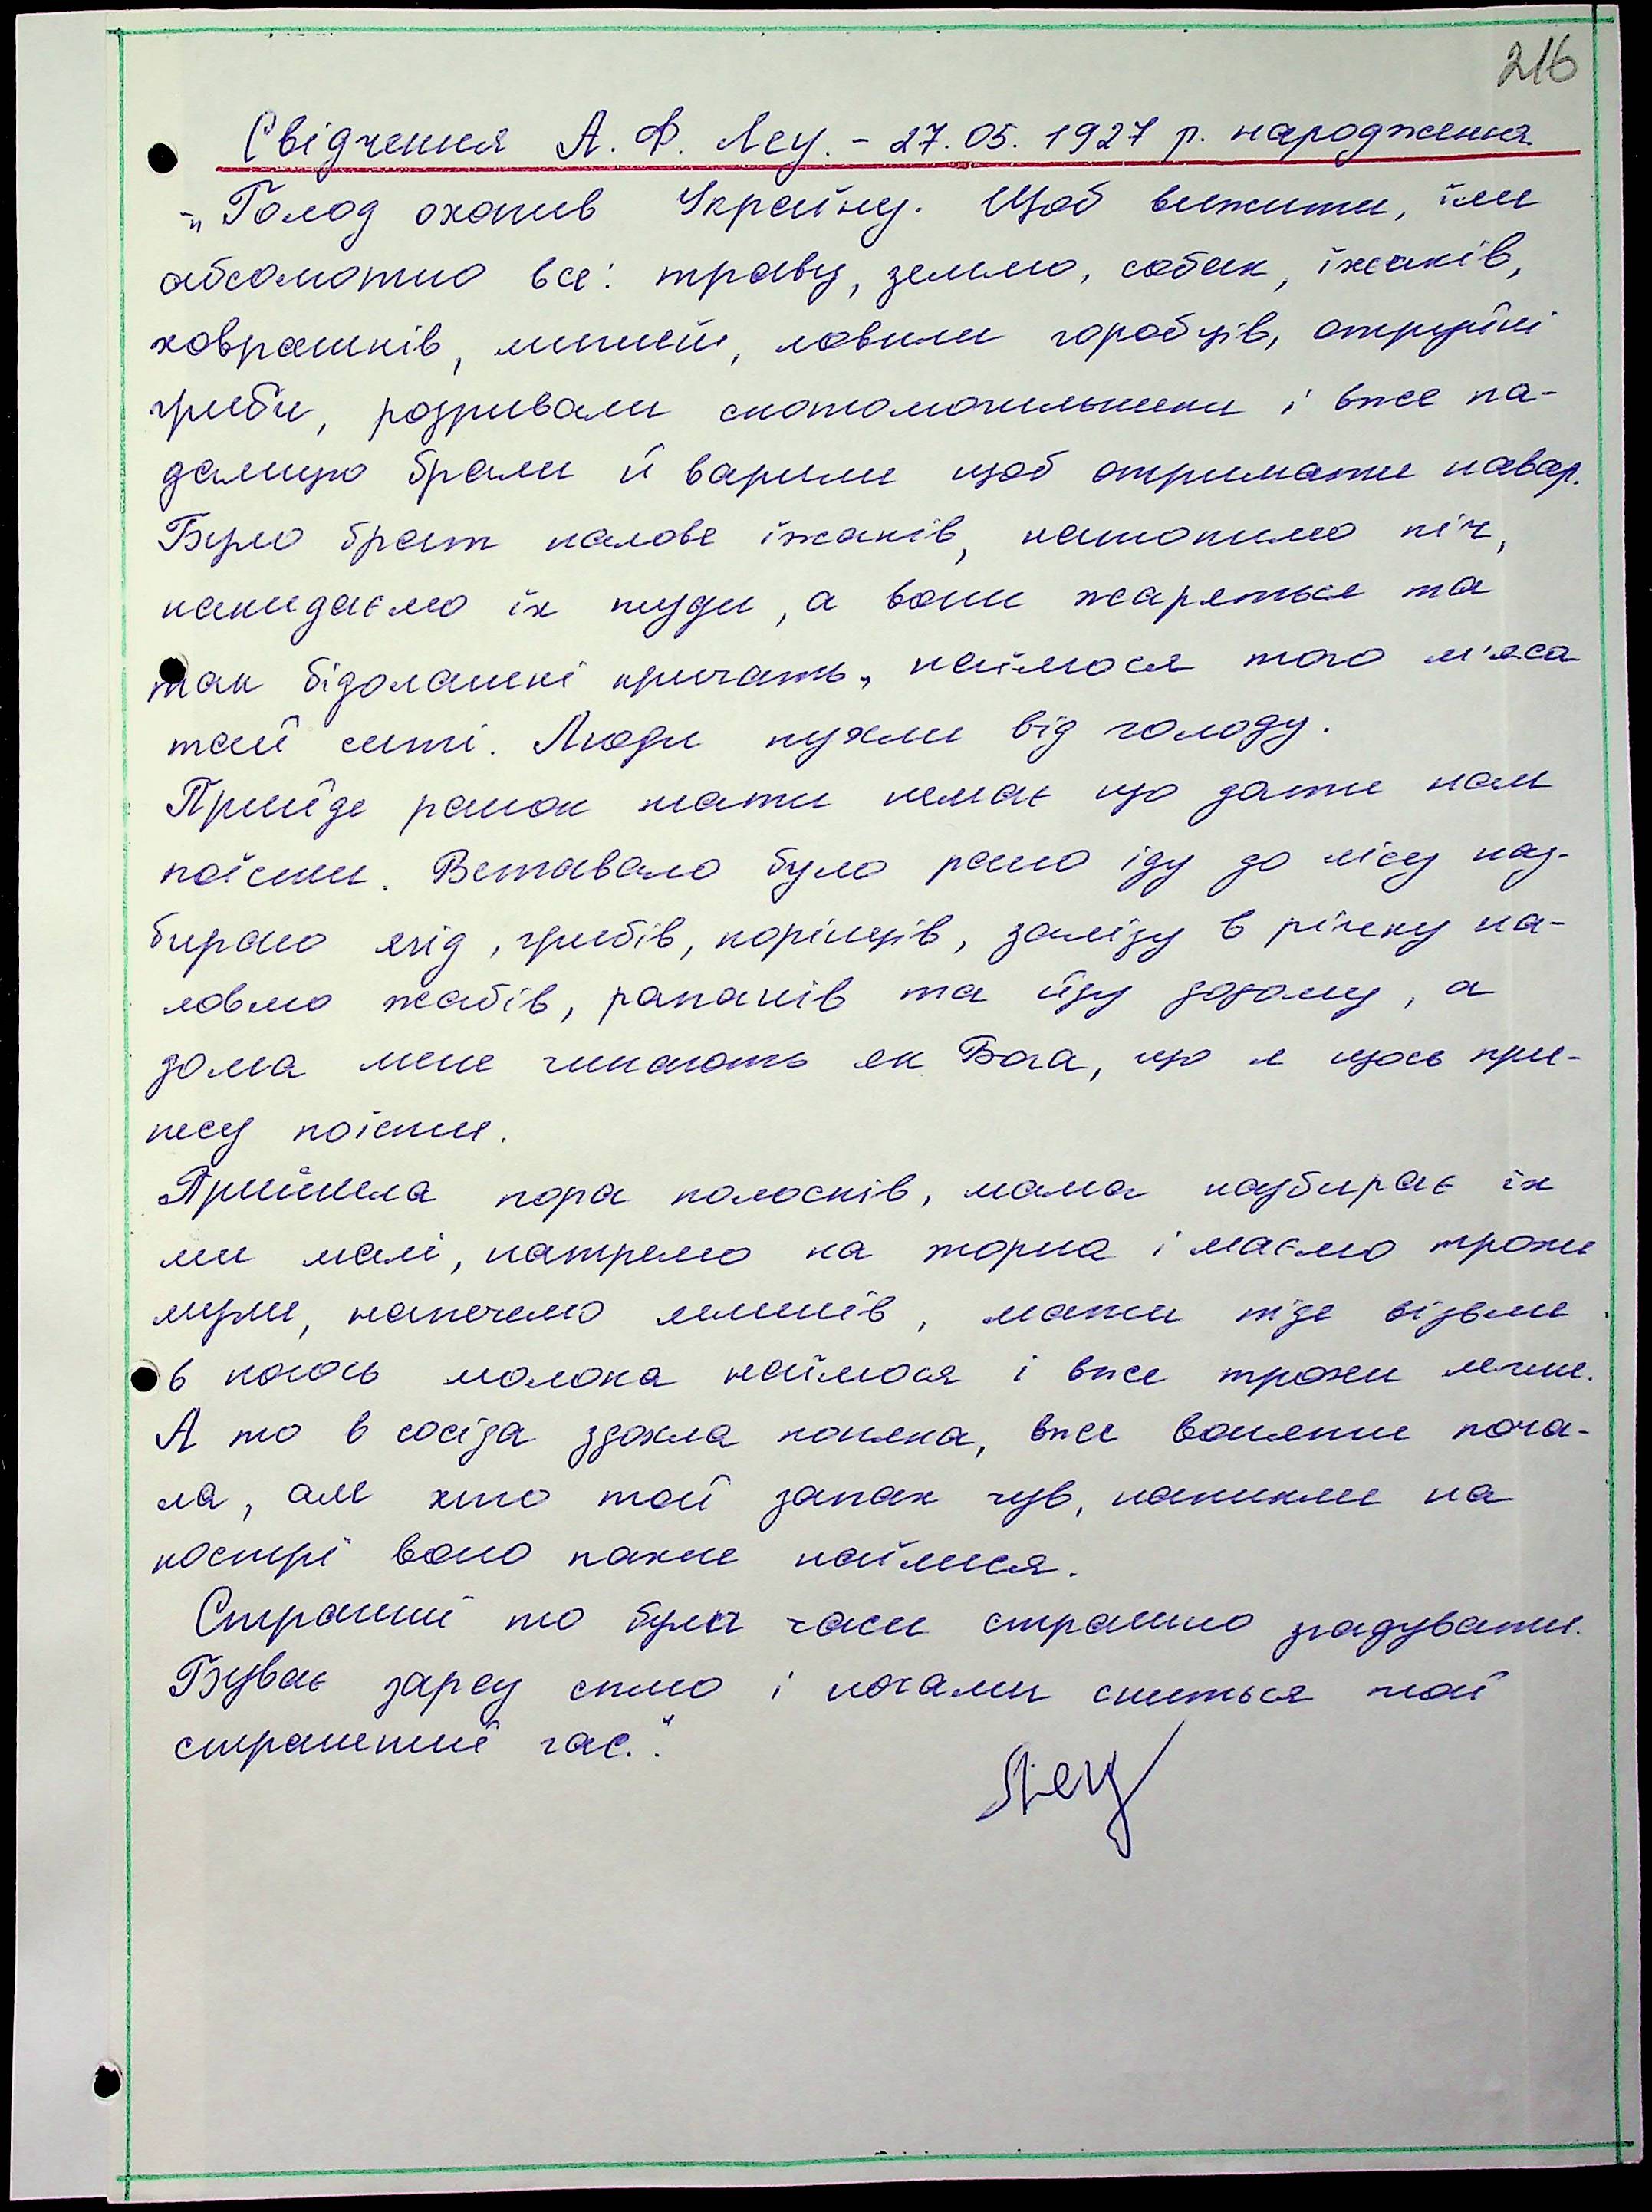 216
Свідчення А. Ф. Лец. - 27.05.1927 р. народження
„Голод охопив Україну. Щоб вижити, їли
абсолютно все: траву, землю, собак, їжаків,
ховрашків, мишей, ловили горобців, отруйні
гриби, розривали скотомогильники і вже па-
далицю брали й варили щоб отримати навар.
Було брат налове їжаків, натопимо піч,
накидаємо їх туди, а вони жаряться та
так бідолашні кричать, наїмося того м'яса
тай ситі. Люди пухли від голоду.
Прийде ранок мати немає що дати нам
поїсти. Вставало було рано іду до лісу наз-
бираю ягід, грибів, корінців, залізу в річку на-
ловлю жабів, рапанів та йду додому, а
дома мене чикають як Бога, що я щось при-
несу поїсти.
Прийшла пора колосків, мама назбирає їх
ми малі, натремо на жорна і маємо трохи
муки, напечемо млинів, мати піде візьме
в когось молока наїмося і вже трохи легше.
А то в сосіда здохла коняка, вже воняти поча-
ла, але хто той запах чув, напикли на
кострі воно пахне наїлися.
Страшні то були часи страшно згадувати.
Буває зареу сплю і ночами сниться той
страшний час."
Лец